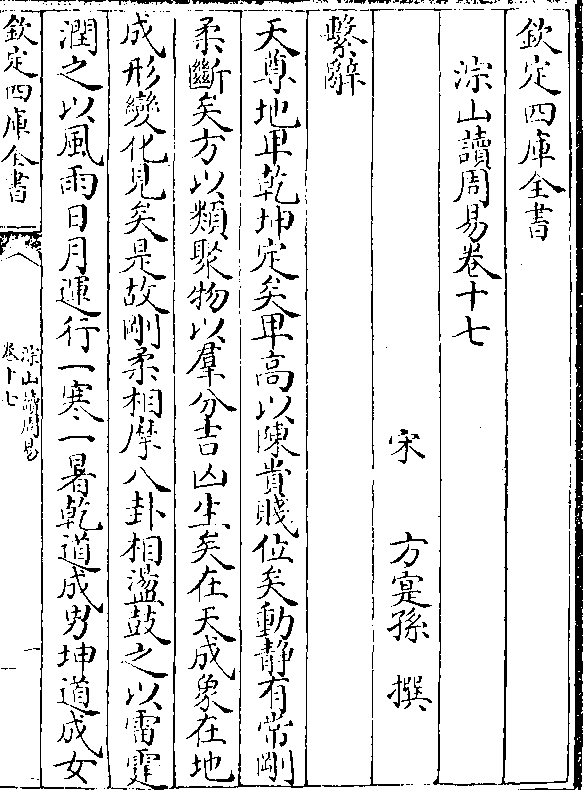 欽定四庫全書
淙山讀周易卷十七
宋 方寔孫 撰
繫辭
天尊地卑乾坤定矣卑高以陳貴賤位矣動静有常剛
柔斷矣方以類聚物以羣分吉凶生矣在天成象在地
成形變化見矣是故剛柔相摩八卦相盪鼓之以雷霆
潤之以風雨日月運行一寒一暑乾道成男坤道成女
欽定四庫全書
淙山讀周易
卷十七
一